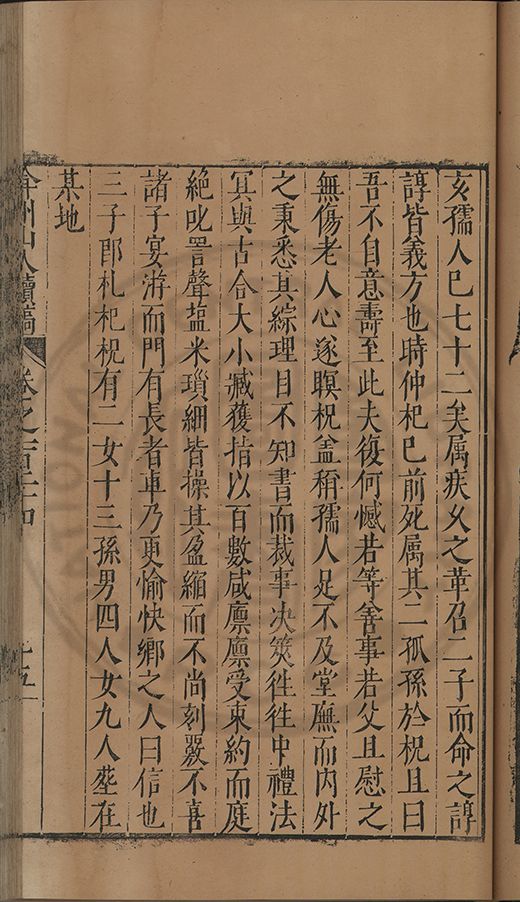 亥孺人已七十二矣属疾久之革召二子而命之諄
諄皆義方也時仲杞已前死属其二孤孫於柷且曰
吾不自意壽至此夫復何憾若等善事若父且慰之
無傷老人心遂瞑柷盖稱孺人足不及堂廡而内外
之秉悉其綜理目不知書而裁事决筴徃徃中禮法
冥與古合大小臧獲指以百數咸廪廪受束約而庭
絶叱詈聲塩米瑣細皆操其盈縮而不尚刻覈不喜
諸子宴游而門有長者車乃更愉快鄉之人曰信也
三子郎札杞柷有二女十三孫男四人女九人塟在
某地
弇州山人續稿
卷之一百二十四